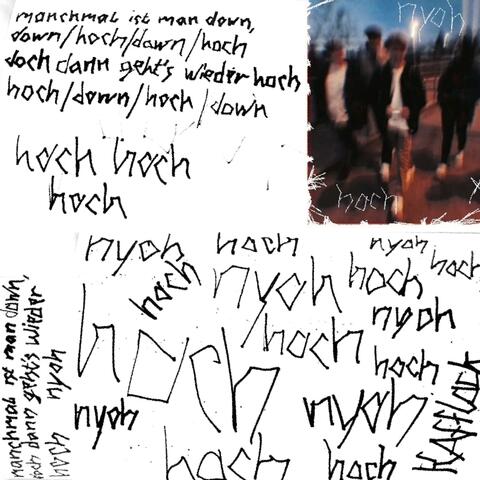 manchmal ist man down,
down/hoch/down/hoch
doch dann geht's wieder hoch
hoch/down/hoch/down
hoch hoch
hoch
nyoh
hoch
nyoh
hoch
nyoh
hoch
hoch
nyoh
hoch
hoch
nyoh
hoch
hoch
hoch
nyoh
nyoh
hoch
hoch
Kafflack
manchmal ist man down,
doch dann geht's wieder
nyoh
hoch